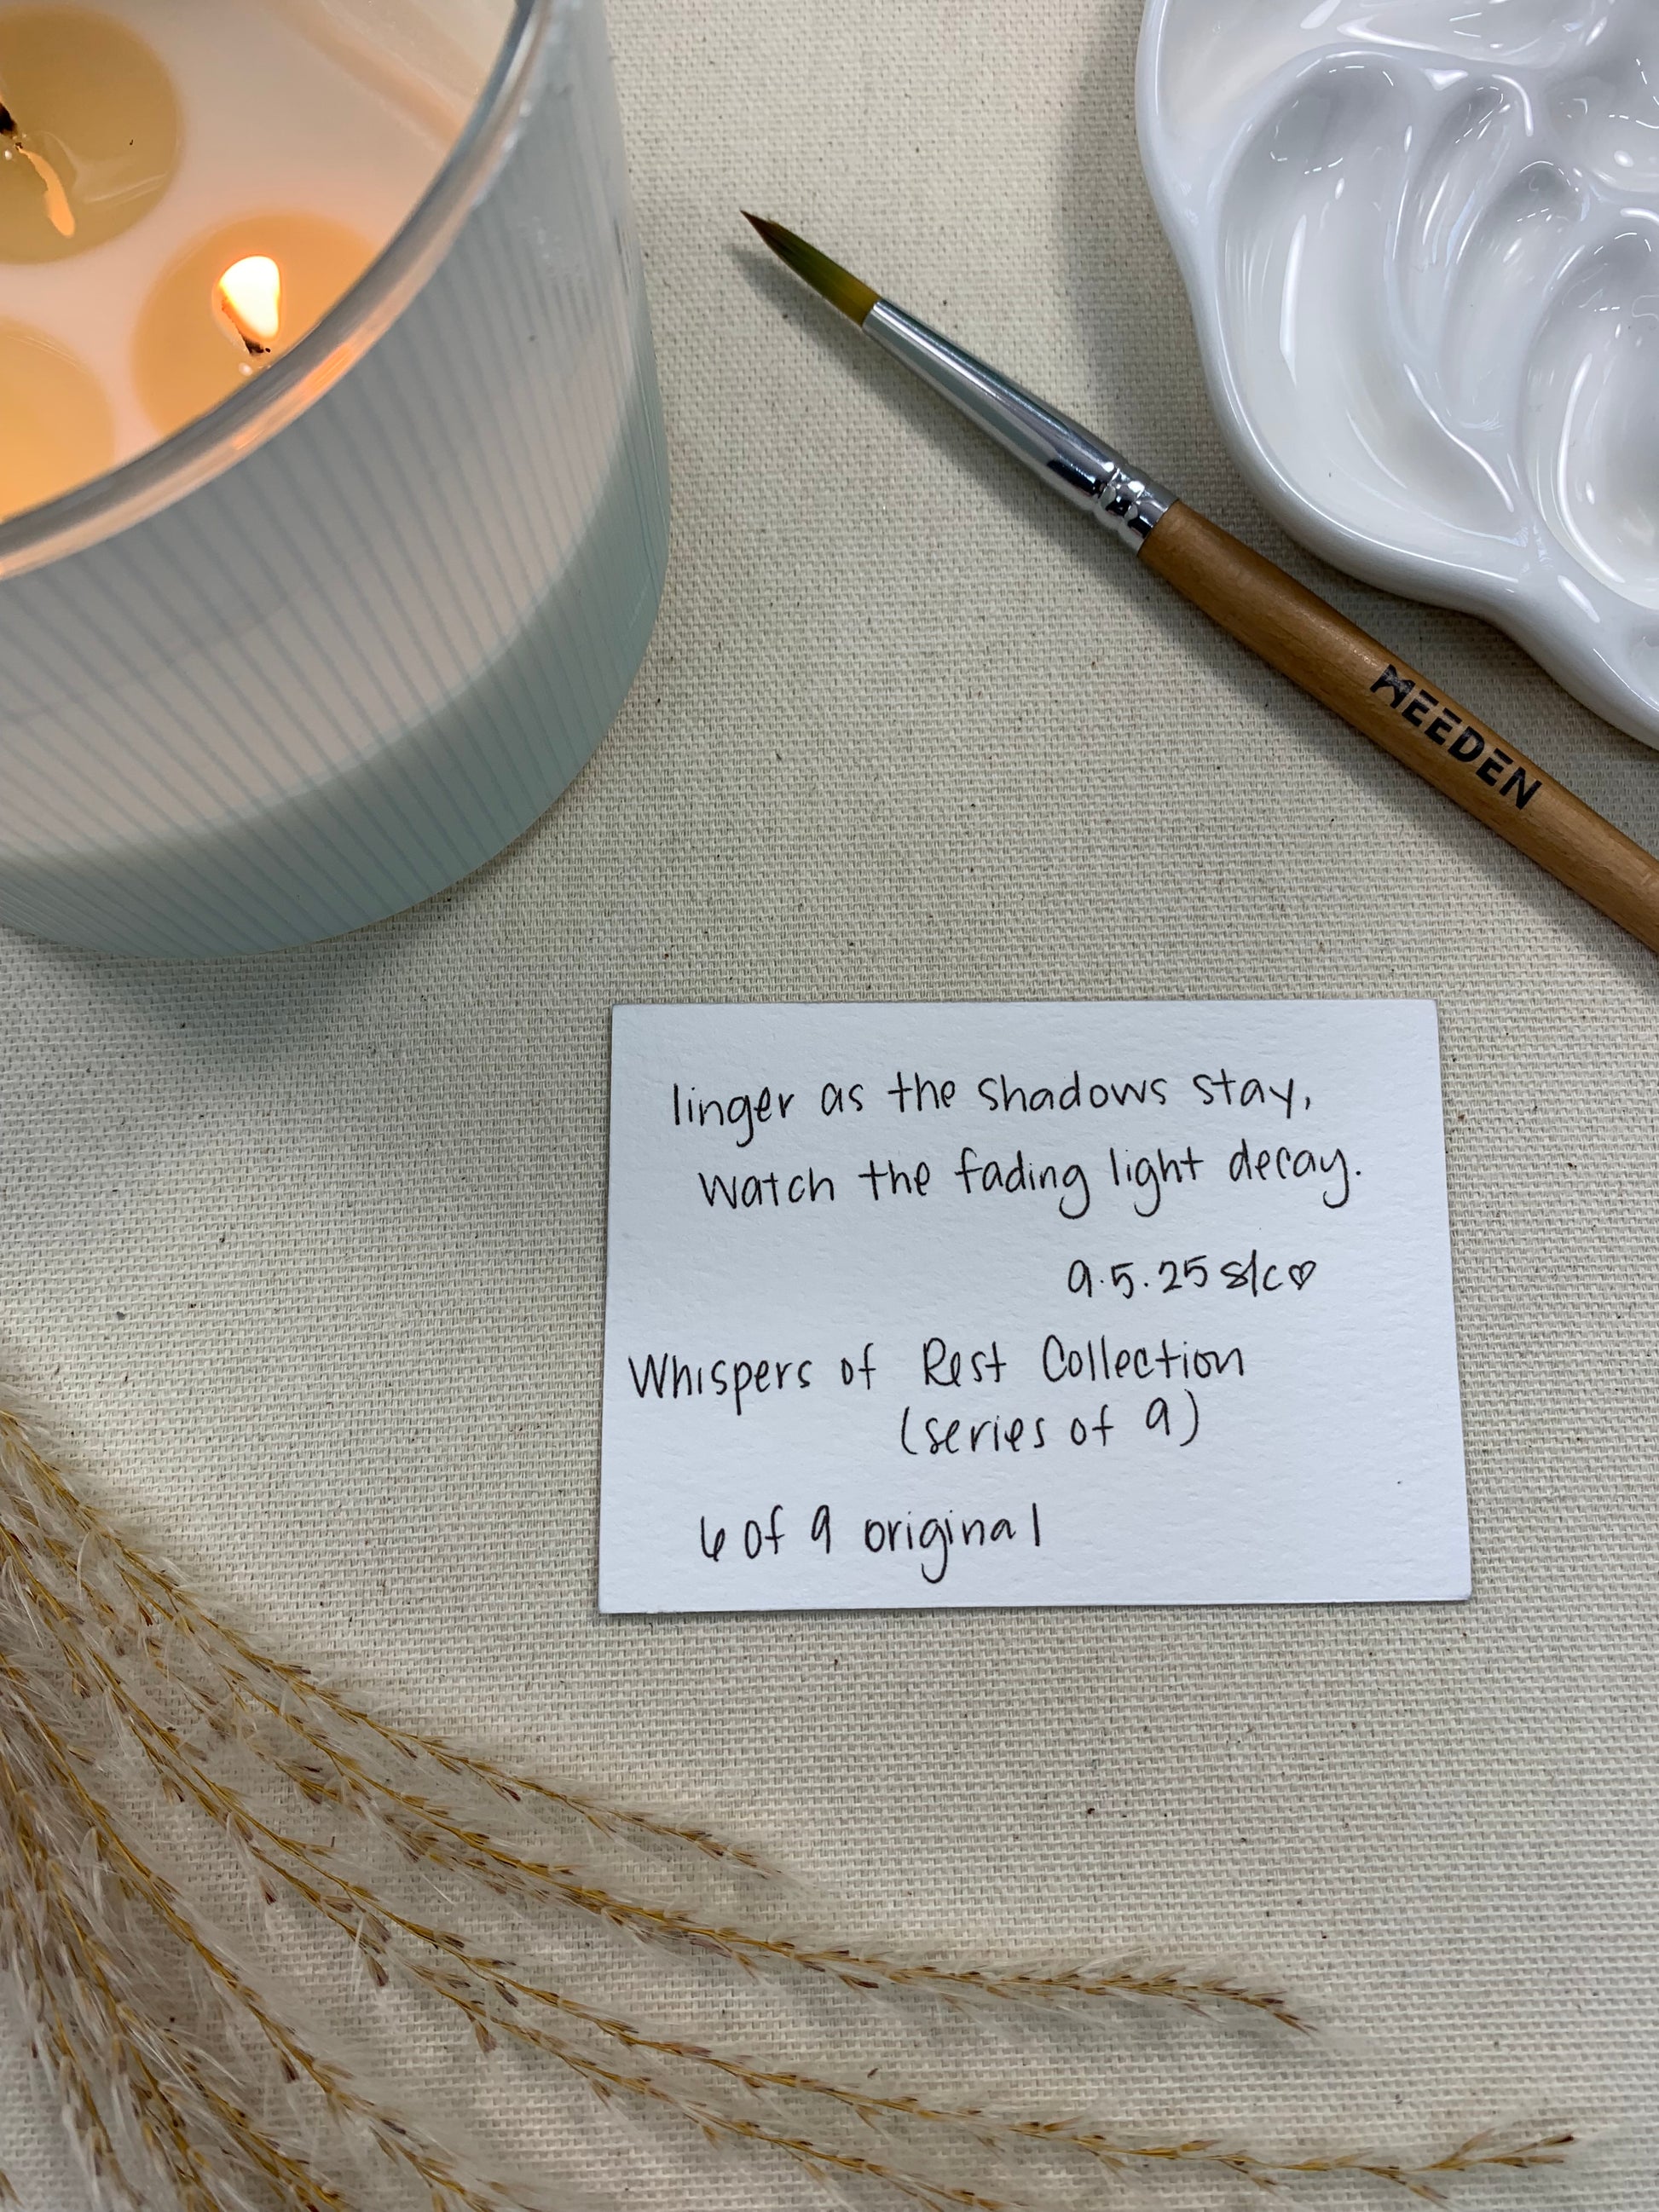 MEEDEN
linger as the shadows stay,
watch the fading light decay.
9.5.25 slc♡
Whispers of Rest Collection
(series of 9)
6 of 9 original